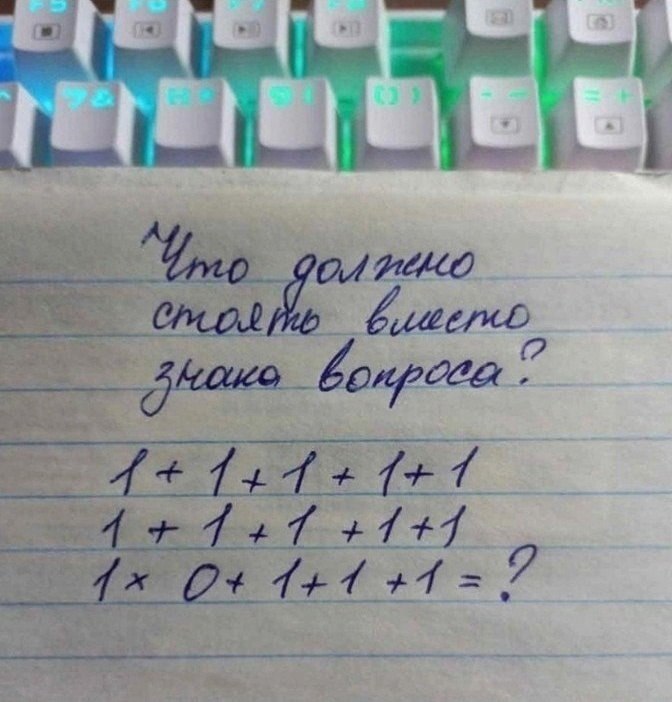 F5 F6 F7 F8
7& 9( 0) - = +
Что должно
стоять вместо
знака вопроса?
1 + 1 + 1 + 1 + 1
1 + 1 + 1 + 1 + 1
1 × 0 + 1 + 1 + 1 = ?